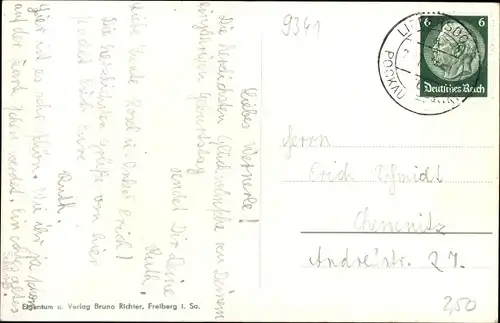 9341
Liebes Wernerle!
Die herzlichsten Glückwünsche zu Deinem
Geburtstag
sendet Dir Deine
Ruth.
Liebe Tante Rosl u. Onkel Erich!
Die herzlichsten Grüße von hier
sendet Euch Eure
Ruth.
Hier ist es sehr schön. Wie ihr ja schon
auf der Karte sehen werdet. Ein
6 6
Deutsches Reich
POCKAU
Herrn
Erich Schmidt
Chemnitz
Andréstr. 27.
Eigentum u. Verlag Bruno Richter, Freiberg i. Sa.
2,50